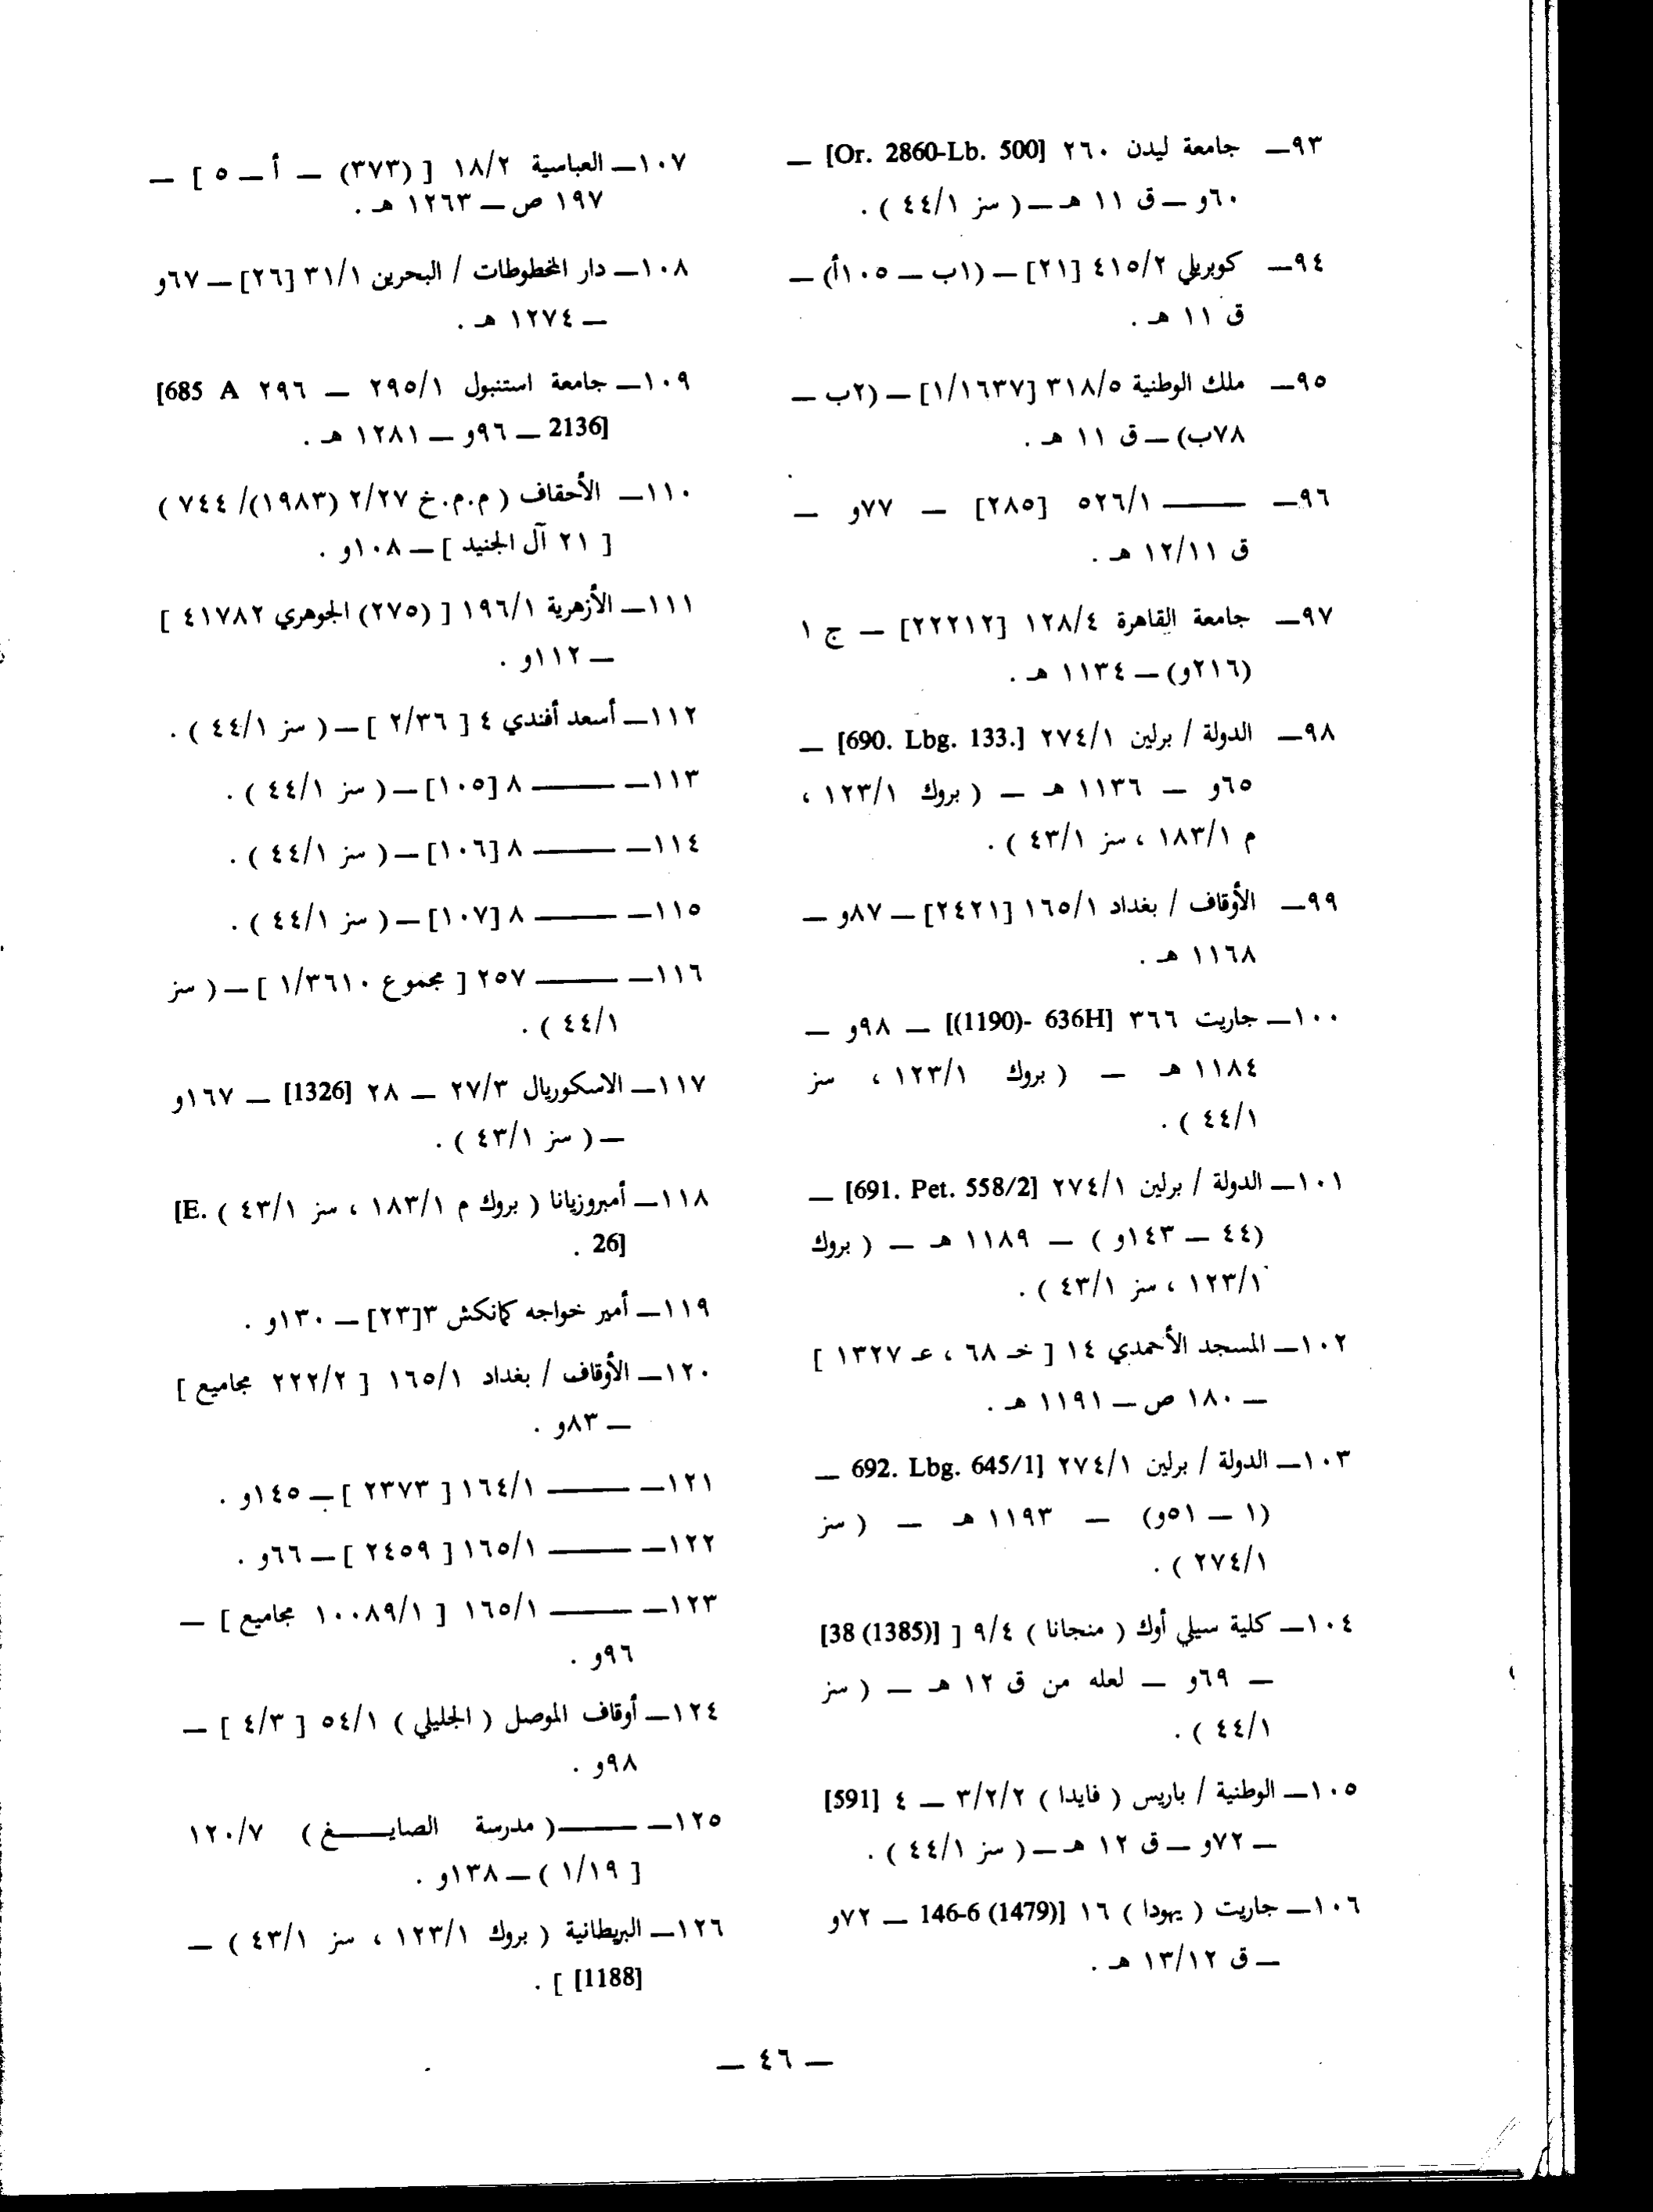 ٩٣ــ جامعة ليدن ٢٦٠ [Or. 2860-Lb. 500] ــ
٦٠و ــ ق ١١ هـ ــ ( سز ٤٤/١ ) .
٩٤ــ كوبريلي ٤١٥/٢ [٢١] ــ (١ب ــ ١٠٥أ) ــ
ق ١١ هـ .
٩٥ــ ملك الوطنية ٣١٨/٥ [١/١٦٣٧] ــ (٢ب ــ
٧٨ب) ــ ق ١١ هـ .
٩٦ــ ــــــ ٥٢٦/١ [٢٨٥] ــ ٧٧و ــ
ق ١٢/١١ هـ .
٩٧ــ جامعة القاهرة ١٢٨/٤ [٢٢٢١٢] ــ ج ١
(٢١٦و) ــ ١١٣٤ هـ .
٩٨ــ الدولة / برلين ٢٧٤/١ [690. Lbg. 133.] ــ
٦٥و ــ ١١٣٦ هـ ــ ( بروك ١٢٣/١ ،
م ١٨٣/١ ، سز ٤٣/١ ) .
٩٩ــ الأوقاف / بغداد ١٦٥/١ [٢٤٢١] ــ ٨٧و ــ
١١٦٨ هـ .
١٠٠ــ جاريت ٣٦٦ [(1190)- 636H] ــ ٩٨و ــ
١١٨٤ هـ ــ ( بروك ١٢٣/١ ، سز
٤٤/١ ) .
١٠١ــ الدولة / برلين ٢٧٤/١ [691. Pet. 558/2] ــ
(٤٤ ــ ١٤٣و ) ــ ١١٨٩ هـ ــ ( بروك
١٢٣/١ ، سز ٤٣/١ ) .
١٠٢ــ المسجد الأحمدي ١٤ [ خـ ٦٨ ، عـ ١٣٢٧ ]
ــ ١٨٠ ص ــ ١١٩١ هـ .
١٠٣ــ الدولة / برلين ٢٧٤/١ [692. Lbg. 645/1 ــ
(١ ــ ٥١و) ــ ١١٩٣ هـ ــ ( سز
٢٧٤/١ ) .
١٠٤ــ كلية سيلي أوك ( منجانا ) ٩/٤ [ [38 (1385)]
ــ ٦٩و ــ لعله من ق ١٢ هـ ــ ( سز
٤٤/١ ) .
١٠٥ــ الوطنية / باريس ( فايدا ) ٣/٢/٢ ــ ٤ [591]
ــ ٧٢و ــ ق ١٢ هـ ــ ( سز ٤٤/١ ) .
١٠٦ــ جاريت ( يهودا ) ١٦ [146-6 (1479) ــ ٧٢و
ــ ق ١٣/١٢ هـ .
١٠٧ــ العباسية ١٨/٢ [ (٣٧٣) ــ أ ــ ٥ ] ــ
١٩٧ ص ــ ١٢٦٣ هـ .
١٠٨ــ دار المخطوطات / البحرين ٣١/١ [٢٦] ــ ٦٧و
ــ ١٢٧٤ هـ .
١٠٩ــ جامعة استنبول ٢٩٥/١ ــ ٢٩٦ [685 A
2136] ــ ٩٦و ــ ١٢٨١ هـ .
١١٠ــ الأحقاف ( م.م.خ ٢/٢٧ (١٩٨٣)/ ٧٤٤ )
[ ٢١ آل الجنيد ] ــ ١٠٨و .
١١١ــ الأزهرية ١٩٦/١ [ (٢٧٥) الجوهري ٤١٧٨٢ ]
ــ ١١٢و .
١١٢ــ أسعد أفندي ٤ [ ٢/٣٦ ] ــ ( سز ٤٤/١ ) .
١١٣ــ ــــــ ٨ [١٠٥] ــ ( سز ٤٤/١ ) .
١١٤ــ ــــــ ٨ [١٠٦] ــ ( سز ٤٤/١ ) .
١١٥ــ ــــــ ٨ [١٠٧] ــ ( سز ٤٤/١ ) .
١١٦ــ ــــــ ٢٥٧ [ مجموع ١/٣٦١٠ ] ــ ( سز
٤٤/١ ) .
١١٧ــ الاسكوريال ٢٧/٣ ــ ٢٨ [1326] ــ ١٦٧و
ــ ( سز ٤٣/١ ) .
١١٨ــ أمبروزيانا ( بروك م ١٨٣/١ ، سز ٤٣/١ ) [E.
26] .
١١٩ــ أمير خواجه كمانكش ٣[٢٣] ــ ١٣٠و .
١٢٠ــ الأوقاف / بغداد ١٦٥/١ [ ٢٢٢/٢ مجاميع ]
ــ ٨٣و .
١٢١ــ ــــــ ١٦٤/١ [ ٢٣٧٣ ] ــ ١٤٥و .
١٢٢ــ ــــــ ١٦٥/١ [ ٢٤٥٩ ] ــ ٦٦و .
١٢٣ــ ــــــ ١٦٥/١ [ ١٠٠٨٩/١ مجاميع ] ــ
٩٦و .
١٢٤ــ أوقاف الموصل ( الجليلي ) ٥٤/١ [ ٤/٣ ] ــ
٩٨و .
١٢٥ــ ــــــ( مدرسة الصايــــغ ) ١٢٠/٧
[ ١/١٩ ) ــ ١٣٨و .
١٢٦ــ البريطانية ( بروك ١٢٣/١ ، سز ٤٣/١ ) ــ
[1188] ] .
ــ ٤٦ ــ